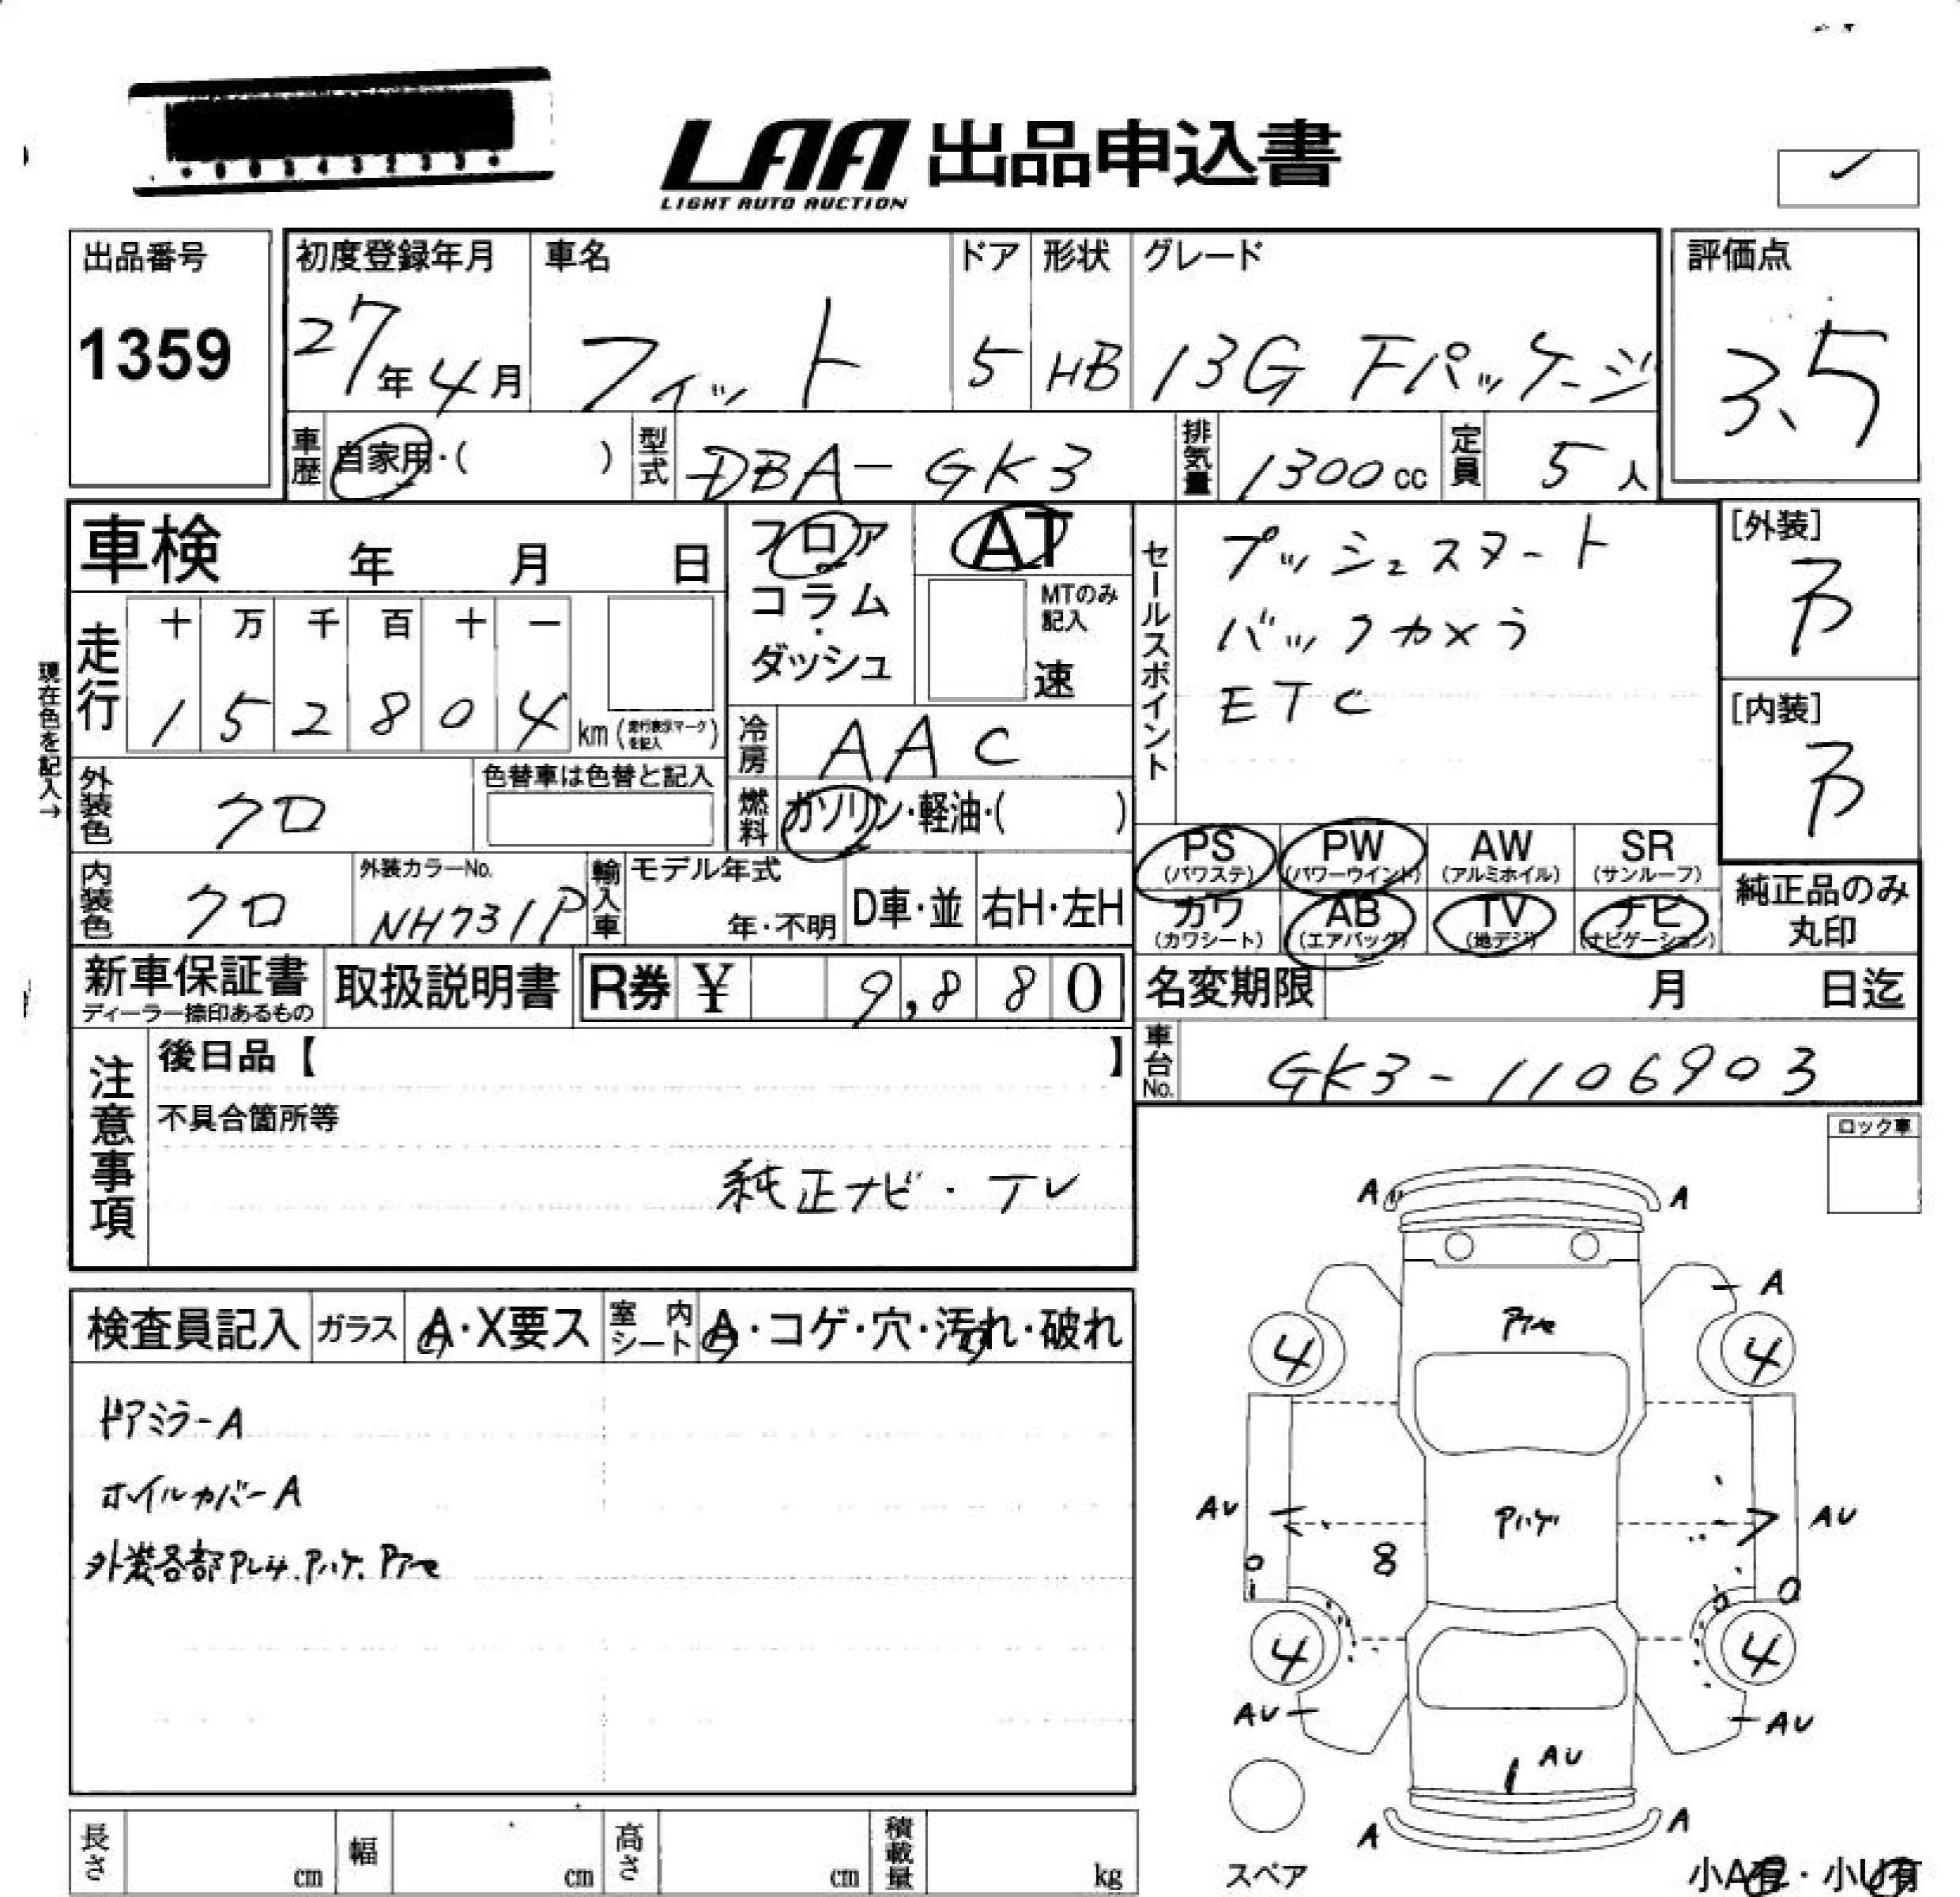 LAA 出品申込書
LIGHT AUTO AUCTION
出品番号
1359
初度登録年月
27年4月
車名
フィット
ドア
5
形状
HB
グレード
13G Fパッケージ
評価点
3.5
車歴
自家用・( )
型式
DBA-GK3
排気量
1300cc
定員
5人
車検 年 月 日
フロア
コラム
・
ダッシュ
AT
MTのみ記入
速
セールスポイント
プッシュスタート
バックカメラ
ETC
[外装]
[内装]
現在色を記入→
走行
十 万 千 百 十 一
1 5 2 8 0 4 km (走行表示マークを記入)
冷房
AAC
外装色
クロ
色替車は色替と記入
燃料
ガソリン・軽油・( )
内装色
クロ
外装カラーNo.
NH731P
輸入車
モデル年式
年・不明
D車・並
右H・左H
PS
(パワステ)
PW
(パワーウインド)
AW
(アルミホイル)
SR
(サンルーフ)
カワ
(カワシート)
AB
(エアバック)
TV
(地デジ)
ナビ
(ナビゲーション)
純正品のみ
丸印
新車保証書
ディーラー捺印あるもの
取扱説明書
R券 ¥ 9,880
名変期限 月 日迄
車台No.
GK3-1106903
注意事項
後日品【 】
不具合箇所等
純正ナビ・TV
ロック車
検査員記入
ガラス
A・X要ス
室内シート
A・コゲ・穴・汚れ・破れ
ドアミラーA
ホイルカバーA
外装各部Pレキ.Pハゲ.Pアセ
A
A
A
Pアセ
4
4
AU
AU
Pハゲ
8
4
4
AU
AU
AU
A
A
スペア
長さ cm
幅 cm
高さ cm
積載量 kg
小A有・小U有